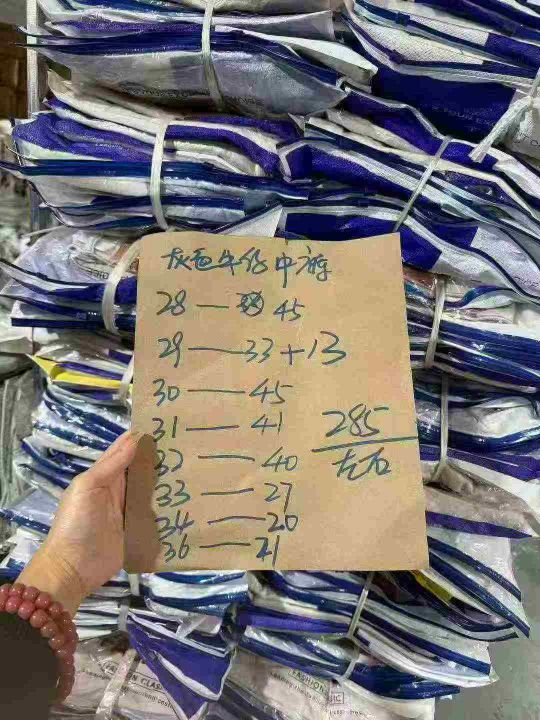 灰色牛仔中裤
28 — 45
29 — 33+13
30 — 45
31 — 41
32 — 40
33 — 27
34 — 20
36 — 21
285
左右
FASHION CLAS
FASHION